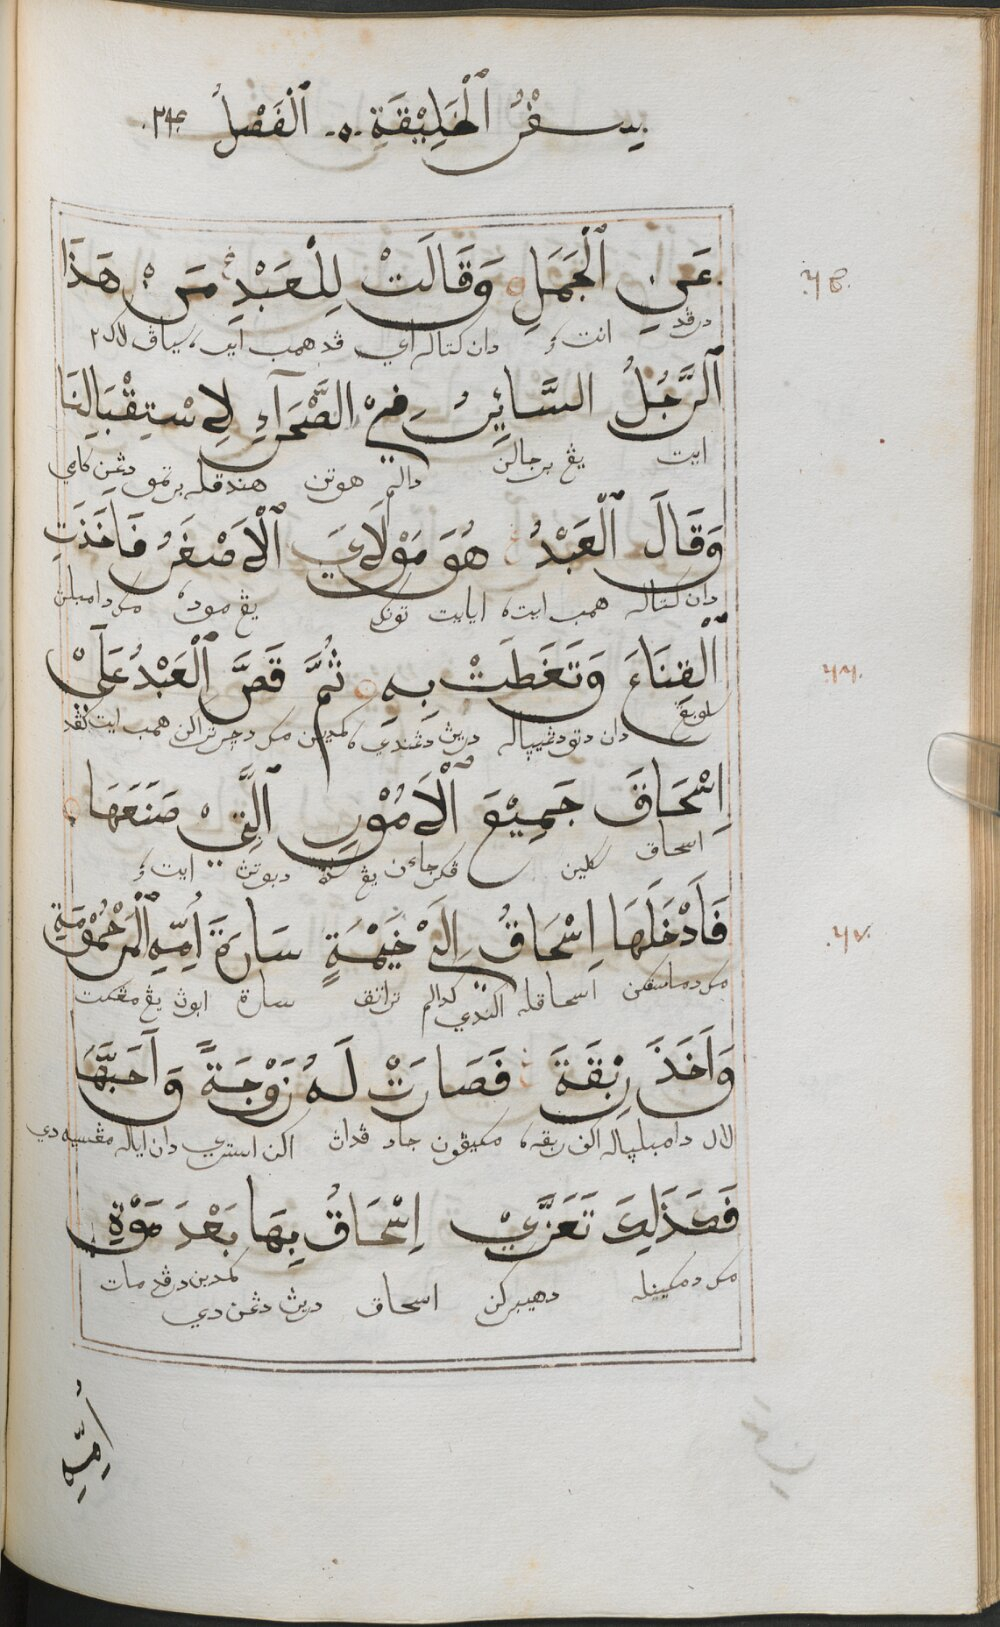 سِفْرُ ٱلْخَلِيْقَةِ ۰٥۰ ٱلْفَصْلُ ۲۴
عَنِ ٱلْجَمَلِ وَقَالَتْ لِلْعَبْدِ مَنْ هَذَا
٦٥
درڤد انت دان كتاله اي ڤد همب ايت سياڤ لاكي٢
ٱلرَّجُلُ السَّائِرُ فِيْ الصَّحَرَآءِ لِاسْتِقْبَالِنَا
ايت يڠ برجالن دالم هوتن هندقله برتمو دڠن كامي
وَقَالَ ٱلْعَبْدُ هُوَ مَوْلَايَ ٱلْاَصْغَرُ فَاَخَذَتِ
دان كتاله همب ايت ايايت تونكو يڠ مودا مك دامبلن
ٱلْقِنَاعَ وَتَغَطَتْ بِهِ ثُمَّ قَصَّ ٱلْعَبْدُ عَلَىْ
٦٦
دان دتودڠيپاله ديرين دڠندي كمدين مك دچرتراكن همب ايت كڤد
اِسْحَاقَ جَمِيْعَ ٱلْاُمُوْرِ ٱلَّتِيْ صَنَعَهَا
اسحاق سكلين ڤكرجاءن يڠ تله دبوتن ايت
فَاَدْخَلَهَا اِسْحَاقُ اِلَىْ خَيْمَةِ سَارَةَ اُمِّهِ ٱلْمَرْحُوْمَةِ
٦٧
مك دماسقكن اسحاقله اكندي كدالم تراتق سارة ابون يڠ مڠكت
وَاَخَذَ رِبْقَةَ فَصَارَتْ لَهُ زَوْجَةً وَاَحَبَّهَا
لالو دامبلپاله اكن ربقه مكيڤون جاد ڤدان اكن استري دان ايله مڠسيه دي
فَكَذَلِكَ تَعَزَّيْ اِسْحَاقُ بِهَا بَعْدَ مَوْتِ
مك دمكينله دهيبركن اسحاق ديرين دڠن دي كمدين درڤد مات
اُمِّهِ